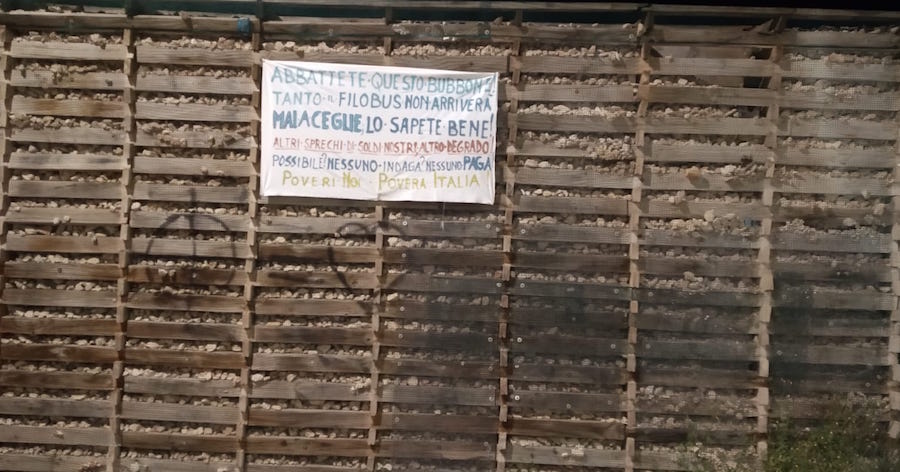 ABBATTETE·QUESTO·BUBBONE!
TANTO·IL FILOBUS NON ARRIVERÀ
MAI A CEGLIE, LO SAPETE BENE!
ALTRI·SPRECHI·DI·SOLDI NOSTRI, ALTRO·DEGRADO
POSSIBILE? NESSUNO·INDAGA? NESSUNO PAGA
POVERI NOI POVERA ITALIA